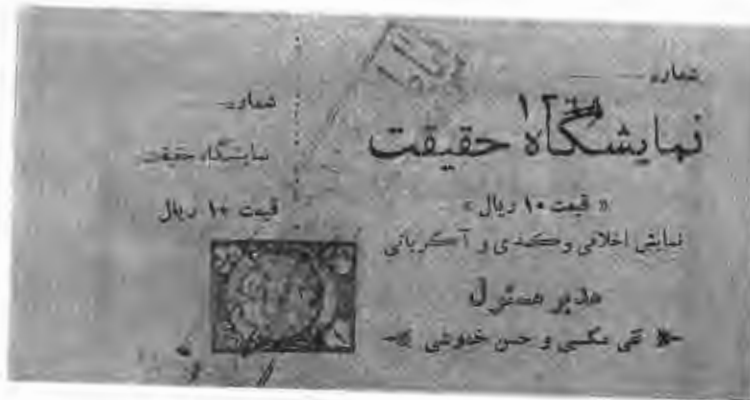 شماره
نمایشگاه حقیقت
« قیمت ۱۰ ریال »
نمایش اخلاقی و کمدی و آکرباتی
مدیر مسئول
تقی مکسی و حسن خدوشی
شماره
نمایشگاه حقیقت
قیمت ۱۰ ریال